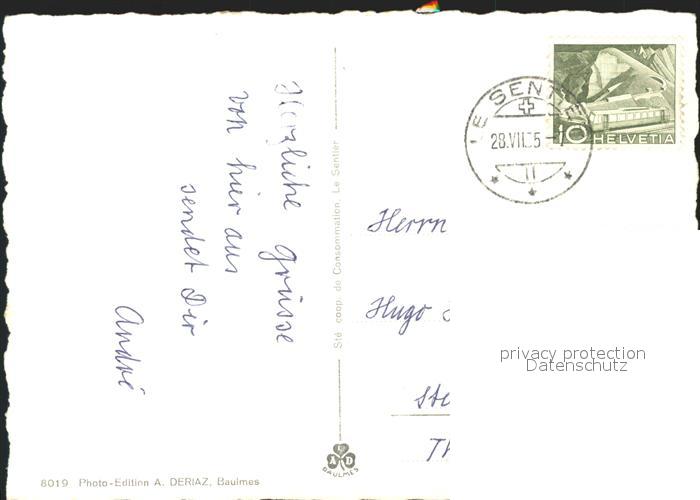 Herzliche Grüsse
von hier aus
sendet Dir
André
Sté coop. de Consommation, Le Sentier
8019 Photo-Edition A. DERIAZ, Baulmes
A D
BAULMES
LE SENTIER
28.VII.
10 HELVETIA
Herrn
Hugo
privacy protection
Datenschutz